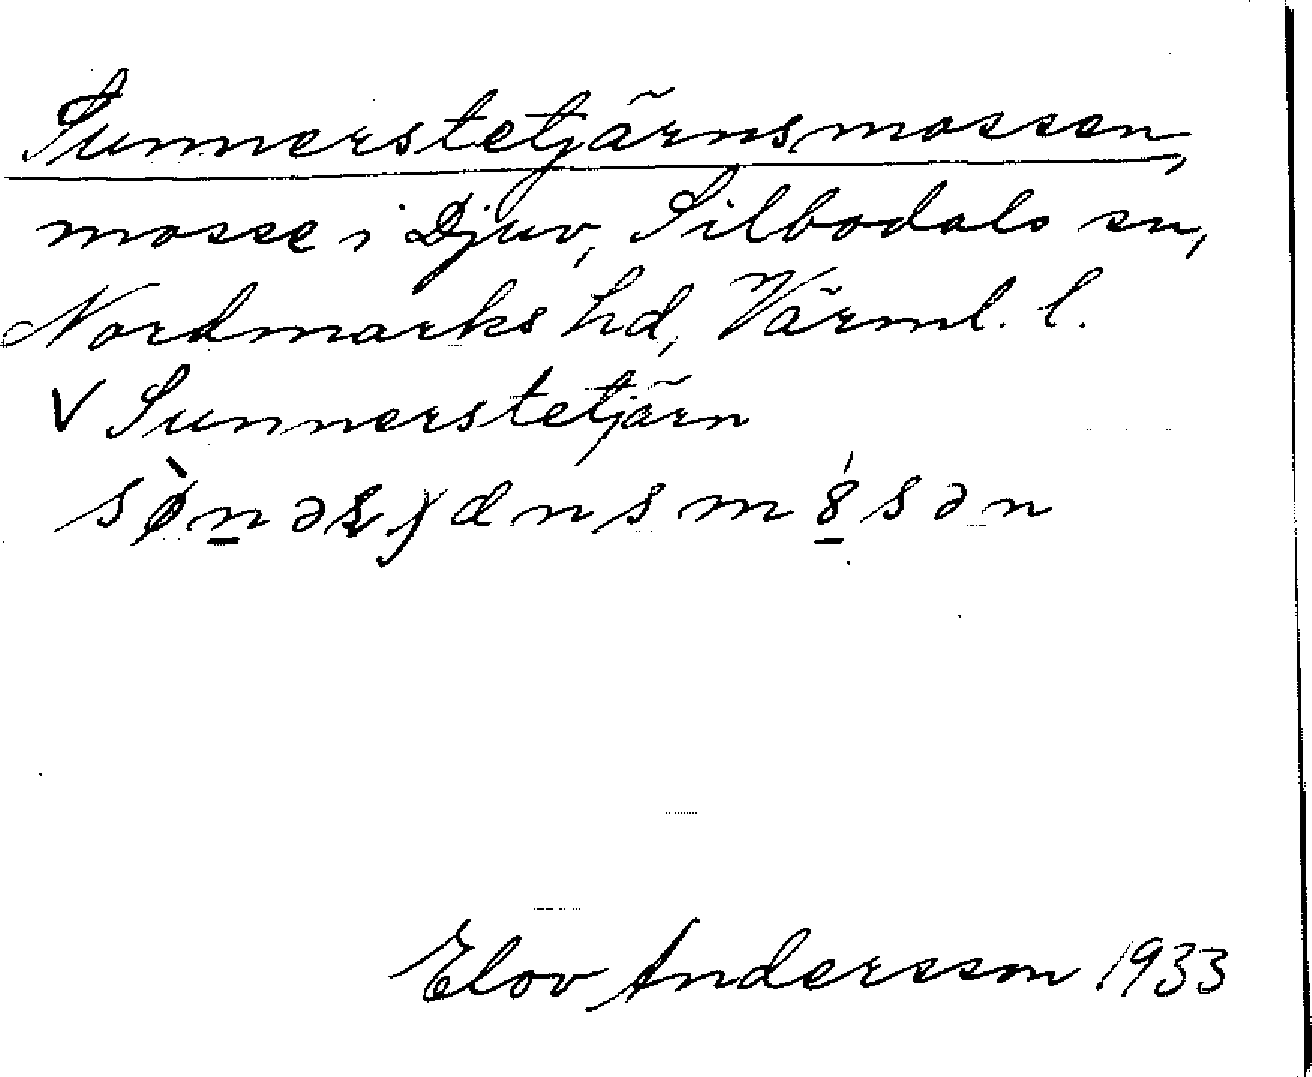 Sunnerstetjärnsmossen,
mosse i Djuv, Silbodals sn,
Nordmarks hd, Värml. l.
V Sunnerstetjärn
Elov Andersson 1933